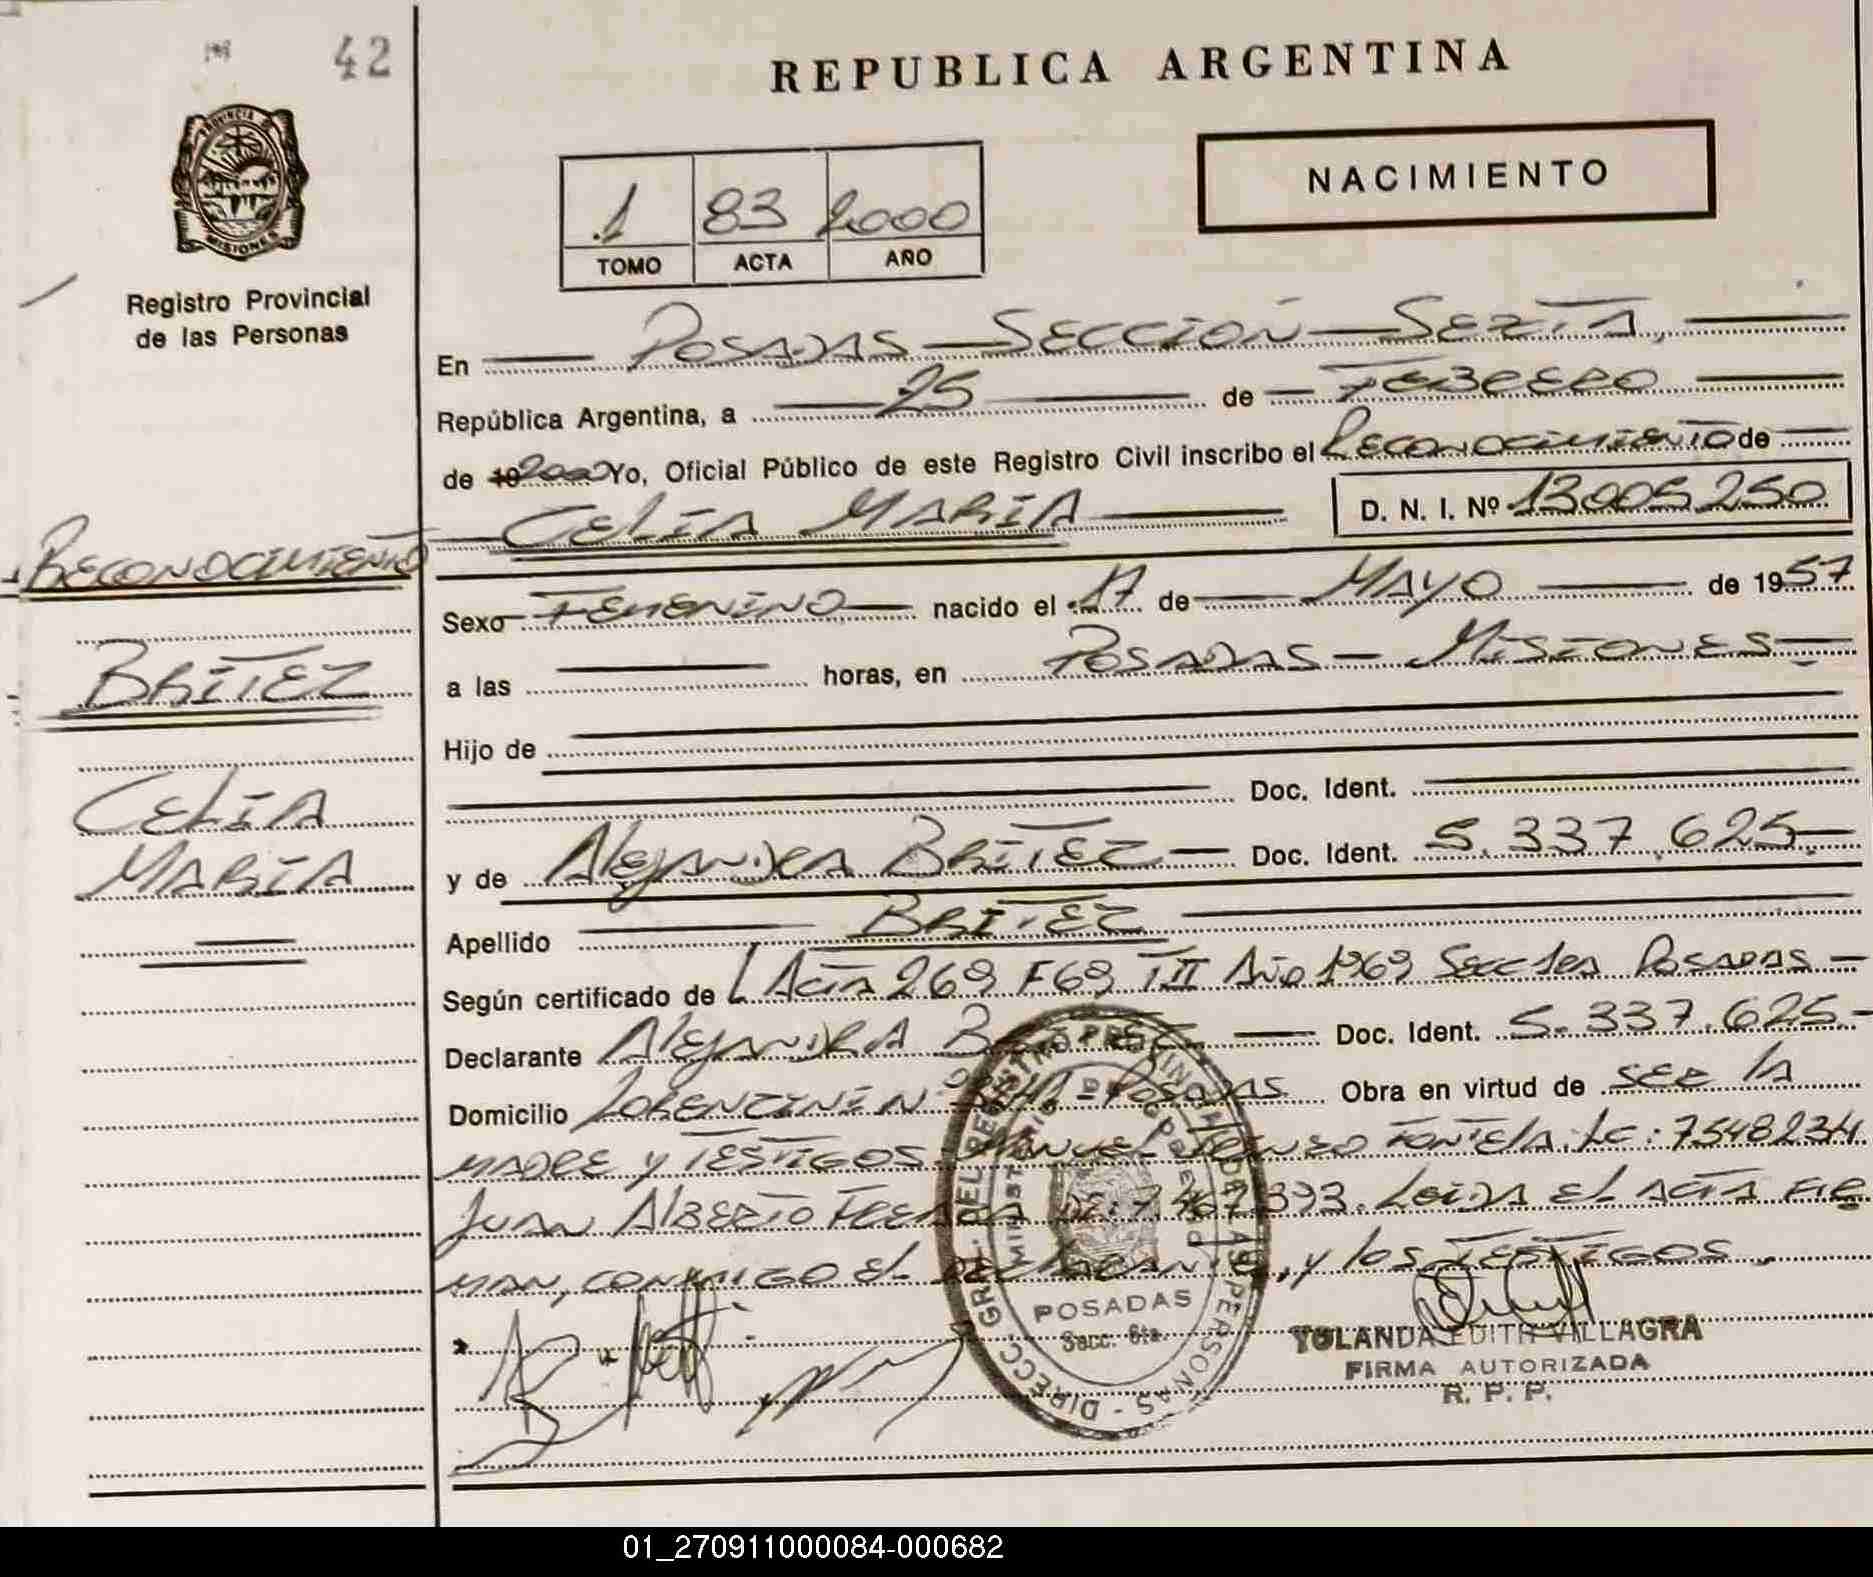 42
REPUBLICA ARGENTINA
NACIMIENTO
1 83 2000
TOMO ACTA AÑO
PROVINCIA DE MISIONES
Registro Provincial
de las Personas
En POSADAS - SECCION - SEXTA,
República Argentina, a 25 de FEBRERO
de 19 2000 Yo, Oficial Público de este Registro Civil inscribo el RECONOCIMIENTO de
CELIA MARIA D. N. I. Nº 13005250
RECONOCIMIENTO
Sexo FEMENINO nacido el 17 de MAYO de 1957
BRITEZ
a las horas, en POSADAS - MISIONES
Hijo de
Doc. Ident.
CELIA
MARIA
y de Alejandra BRITEZ Doc. Ident. 5.337.625
Apellido BRITEZ
Según certificado de Acta 269 F69 TII Año 1969 Secc 1era POSADAS
Declarante Alejandra Doc. Ident. 5.337.625
Domicilio POSADAS Obra en virtud de SER la
MADRE y TESTIGOS MANUEL FONTELA. LE: 7548234
JUAN ALBERTO 7.467.393. Leida el ACTA FIR
MAN, CONMIGO el DECLARANTE, y los TESTIGOS
DIRECC. GRAL. DEL REGISTRO PROVINCIAL DE LAS PERSONAS
POSADAS
Secc. 6ta.
YOLANDA EDITH VILLAGRA
FIRMA AUTORIZADA
R. P. P.
01_270911000084-000682